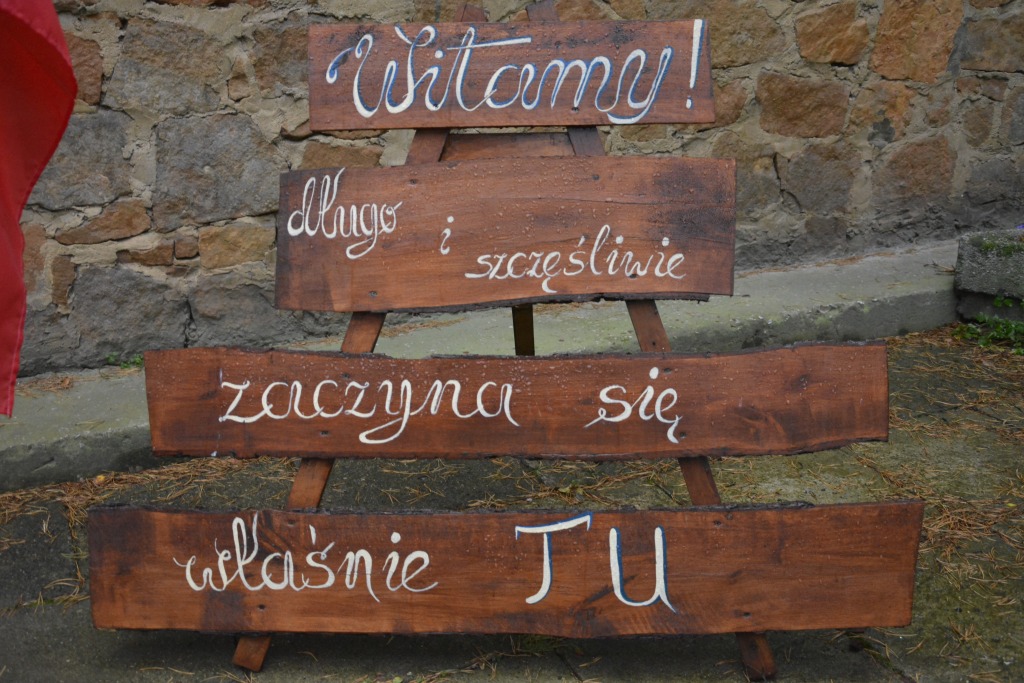 Witamy!
długo i szczęśliwie
zaczyna się
właśnie TU